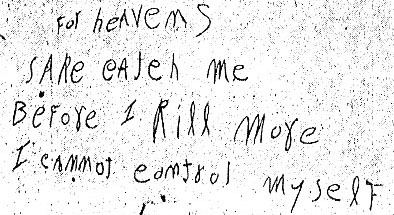 For heAvens
SAKe cAtch me
BeFore I Kill More
I cannot control myself